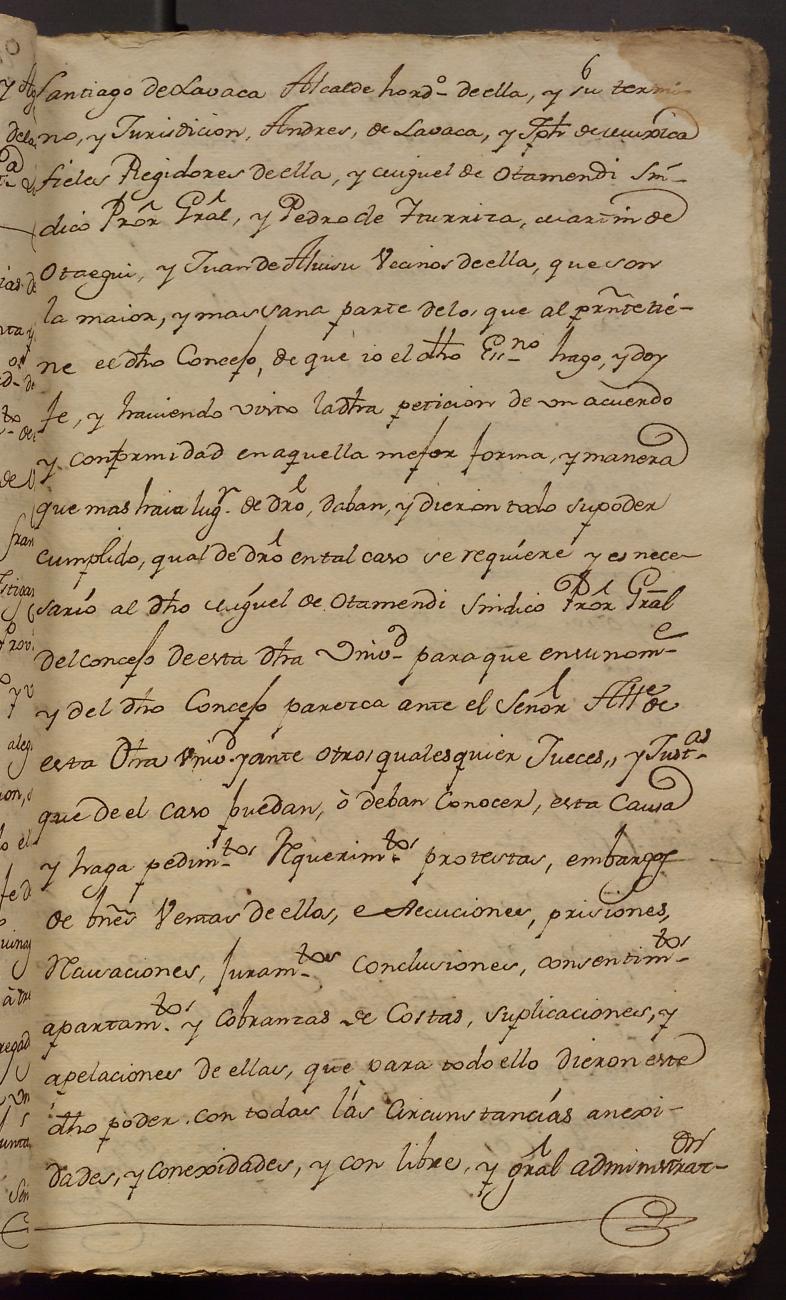 Santiago de Lavaca Alcalde hordº de ella, y su termi
no, y Jurisdicion, Andres, de Lavaca, y Jph de
fieles Regidores de ella, y Miguel de Otamendi Sin-
dico Prõr Gral, y Pedro de Yturriza, Martin de
Otaegui, y Juan de Alusu Vecinos de ella, que son
la maior, y mas sana parte delos que al prñte tie-
ne el dho Concejo, de que io el dho Essno hago, y doy
fe, y haviendo visto la dha peticion de un acuerdo
y conformidad en aquella mejor forma, y manera
que mas haia lugr de dro, daban, y dieron todo su poder
cumplido, qual de dro en tal caso se requiere y es nece-
sario al dho Miguel de Otamendi Sindico Prõr Gral
del concejo de esta dha Univd para que en su nome
y del dho Concejo parezca ante el Señor Alle de
esta dha Univd y ante otros qualesquier Jueces, y Justas
que de el caso puedan, ò deban Conocer, esta Causa
y haga pedimtos Requerimtos protestas, embargos
de bñes Ventas de ellos, execuciones, prisiones,
Recusaciones, Juramtos Conclusiones, consentimtos
apartamtos y Cobranzas de Costas, suplicaciones, y
apelaciones de ellas, que para todo ello dieron este
dho poder con todas las Circunstancias anexi-
dades, y conexidades, y con libre, y gral administraon